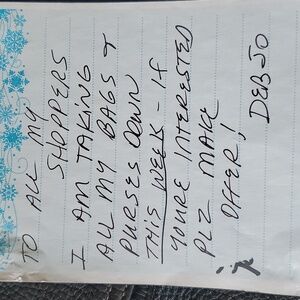 TO ALL MY
SHOPPERS
I AM TAKING
ALL MY BAGS &
PURSES DOWN
THIS WEEK - IF
YOU'RE INTERESTED
PLZ MAKE
OFFER!
DEB JO